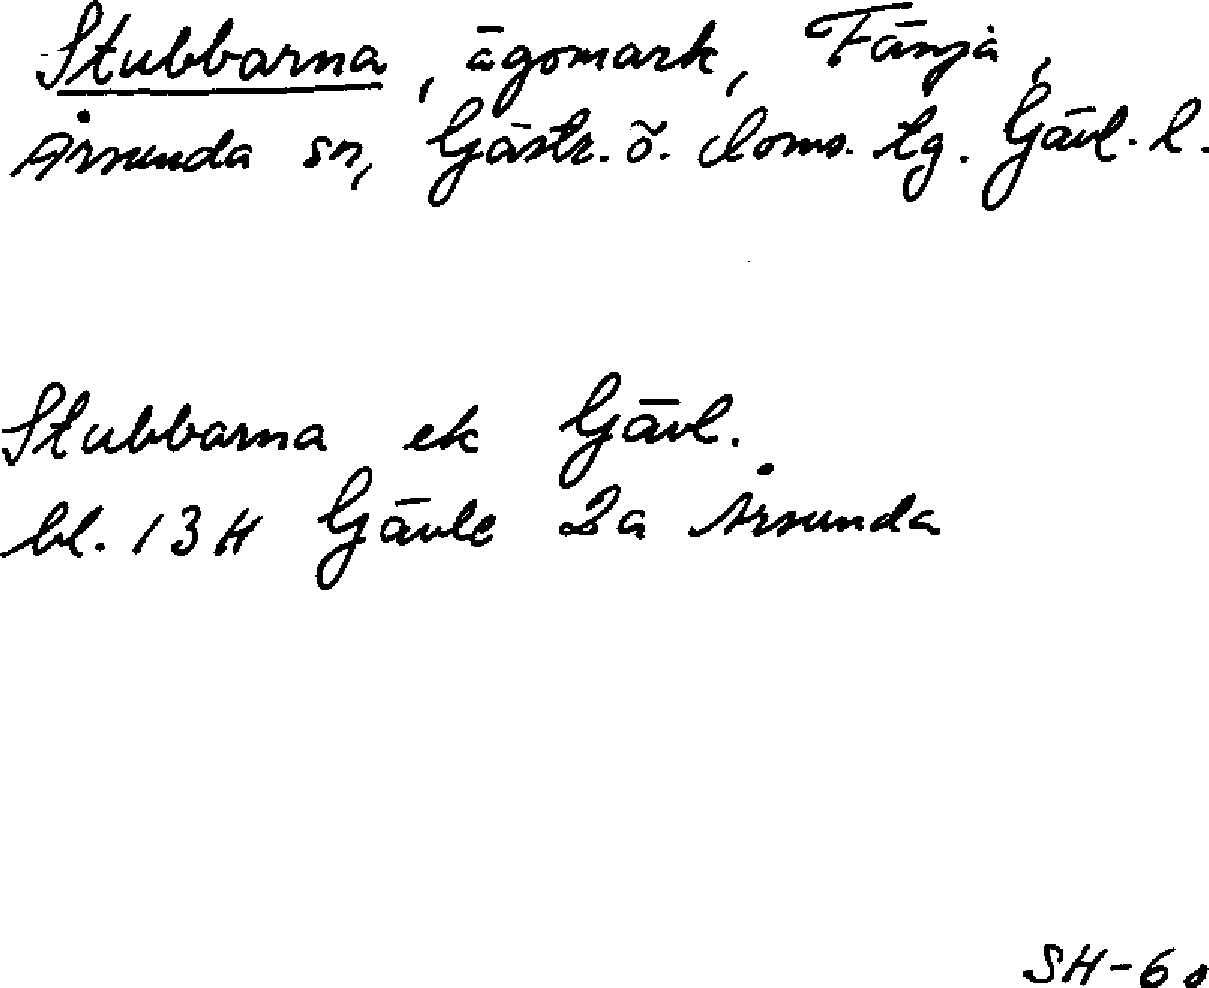 Stubbarna, ägomark, Fänja,
Årsunda sn, Gästr. ö. doms. tg. Gävl. l.
Stubbarna ek Gävl.
bl. 13H Gävle 2a Årsunda